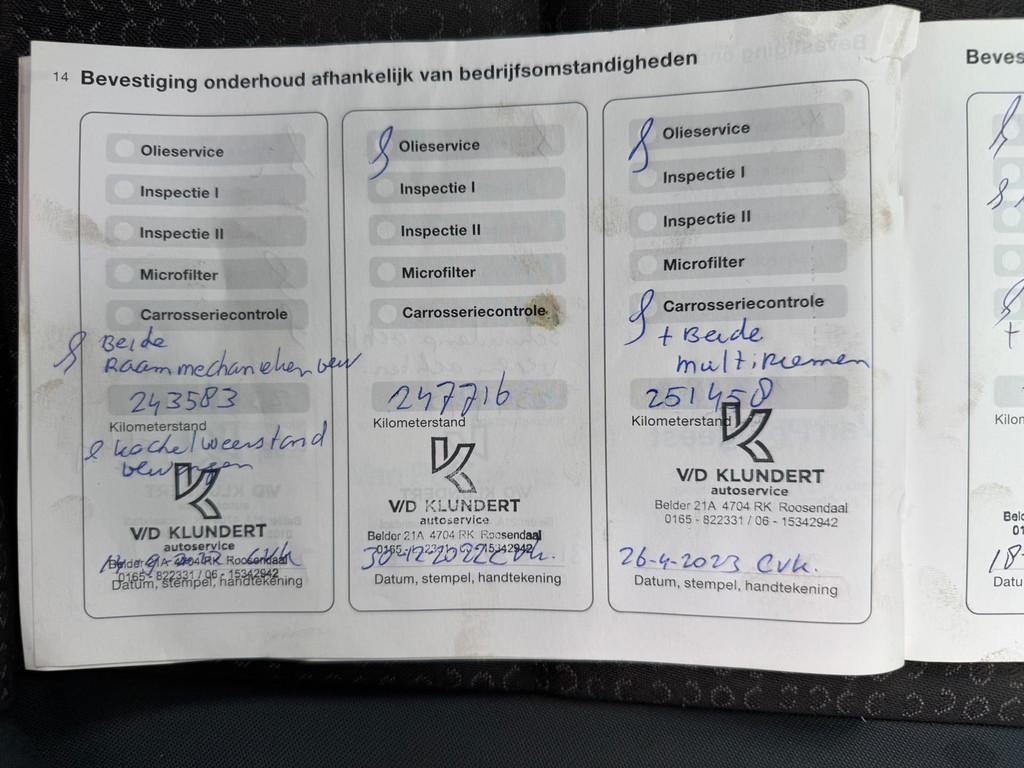 14 Bevestiging onderhoud afhankelijk van bedrijfsomstandigheden
Olieservice
Inspectie I
Inspectie II
Microfilter
Carrosseriecontrole
Beide
Raammechanieken
243583
Kilometerstand
kachelweerstand
V/D KLUNDERT
autoservice
Belder 21A 4704 RK Roosendaal
0165 - 822331 / 06 - 15342942
CVK
Datum, stempel, handtekening
Olieservice
Inspectie I
Inspectie II
Microfilter
Carrosseriecontrole
247716
Kilometerstand
V/D KLUNDERT
autoservice
Belder 21A 4704 RK Roosendaal
0165 - 822331 / 06 - 15342942
30-12-2022 CVK.
Datum, stempel, handtekening
Olieservice
Inspectie I
Inspectie II
Microfilter
Carrosseriecontrole
+ Beide
multiriemen
251458
Kilometerstand
V/D KLUNDERT
autoservice
Belder 21A 4704 RK Roosendaal
0165 - 822331 / 06 - 15342942
26-4-2023 CVK.
Datum, stempel, handtekening
Beves
+
Kilon
Belc
01
18-
Datu